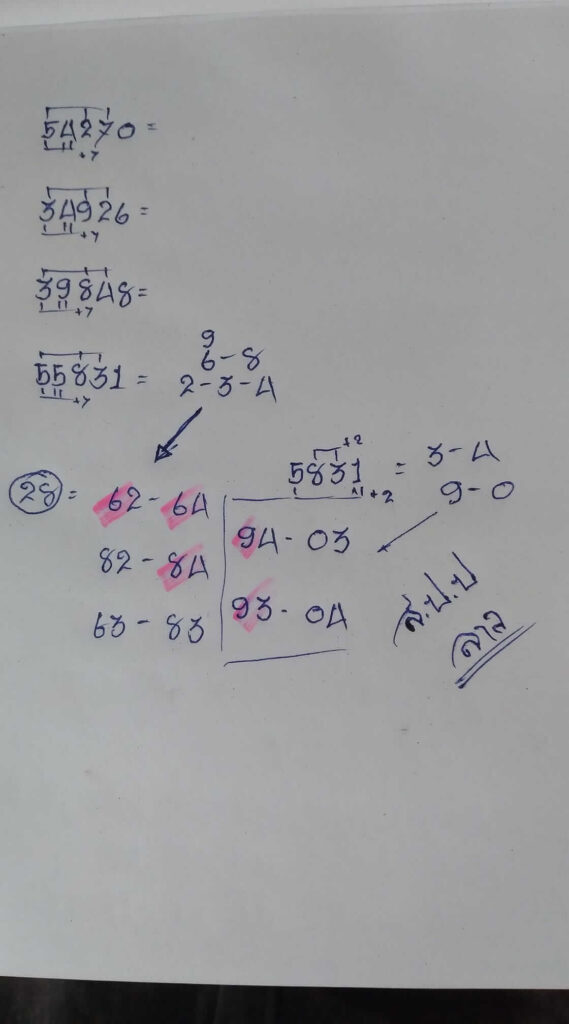 54270 =
+7
34926 =
+7
39848 =
+7
55831 =
+7
9
6-8
2-3-4
+2
5831 = 3-4
+2
9-0
28 = 62-64
82-84
63-83
94-03
93-04
ส.ป.ป
ลาว